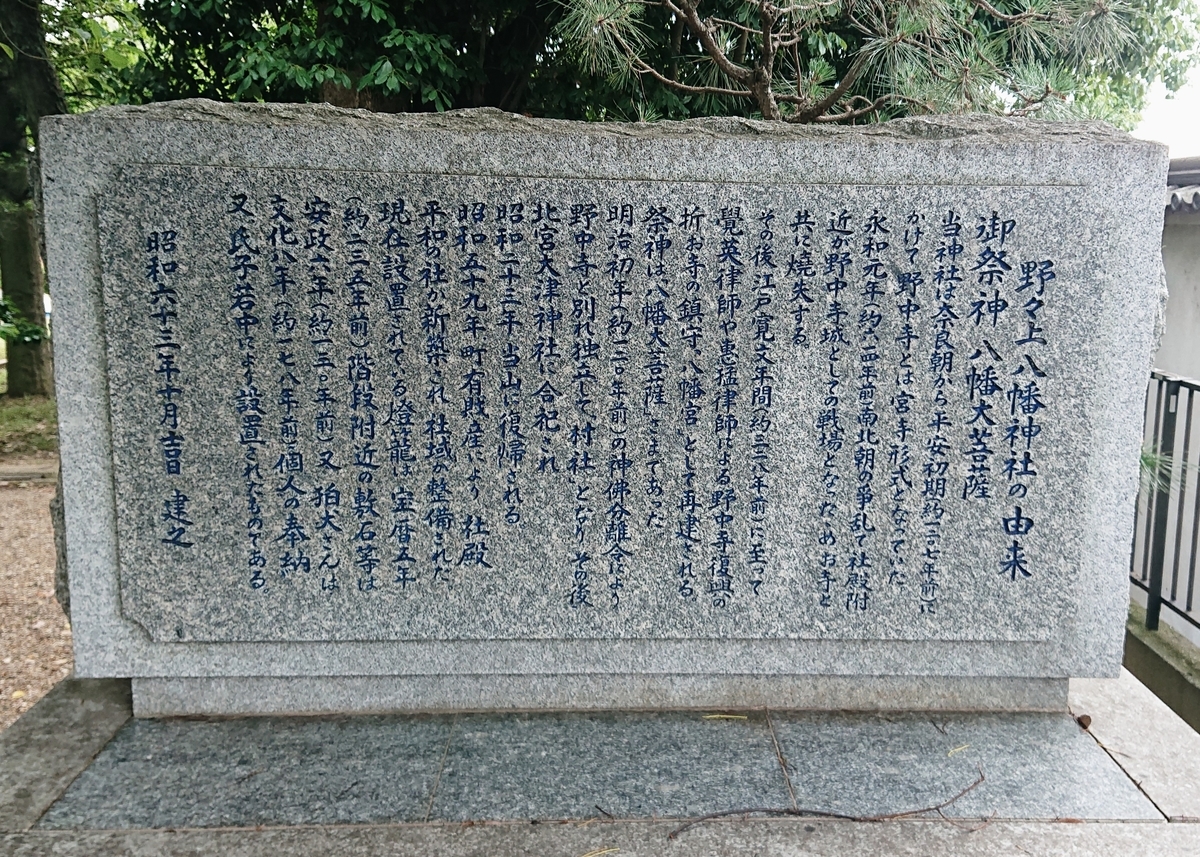 野々上八幡神社の由来
御祭神 八幡大菩薩
当神社は奈良朝から平安初期(約一二〇七年前)に
かけて野中寺とは宮寺形式となっていた
永和元年(約六一四年前南北朝の争乱で社殿附
近が野中寺城としての戦場となったためお寺と
共に焼失する
その後江戸寛文年間(約三二八年前)に至って
覺英律師や惠猛律師による野中寺復興の
折お寺の鎮守"八幡宮"として再建される
祭神は"八幡大菩薩"さまであった
明治初年(約一二〇年前)の神佛分離令により
野中寺と別れ独立して"村社"となり その後
北宮大津神社に合祀され
昭和二十三年 当山に復帰される
昭和五十九年 町有財産により 社殿
平和の社が新築され 社域が整備された
現在設置されている燈籠は 宝暦五年
(約二三五年前)階段附近の敷石等は
安政六年(約一三〇年前)又 狛犬さんは
文化八年(約一七八年前)個人の奉納
又氏子若中により設置されたものである
昭和六十三年十月吉日 建之